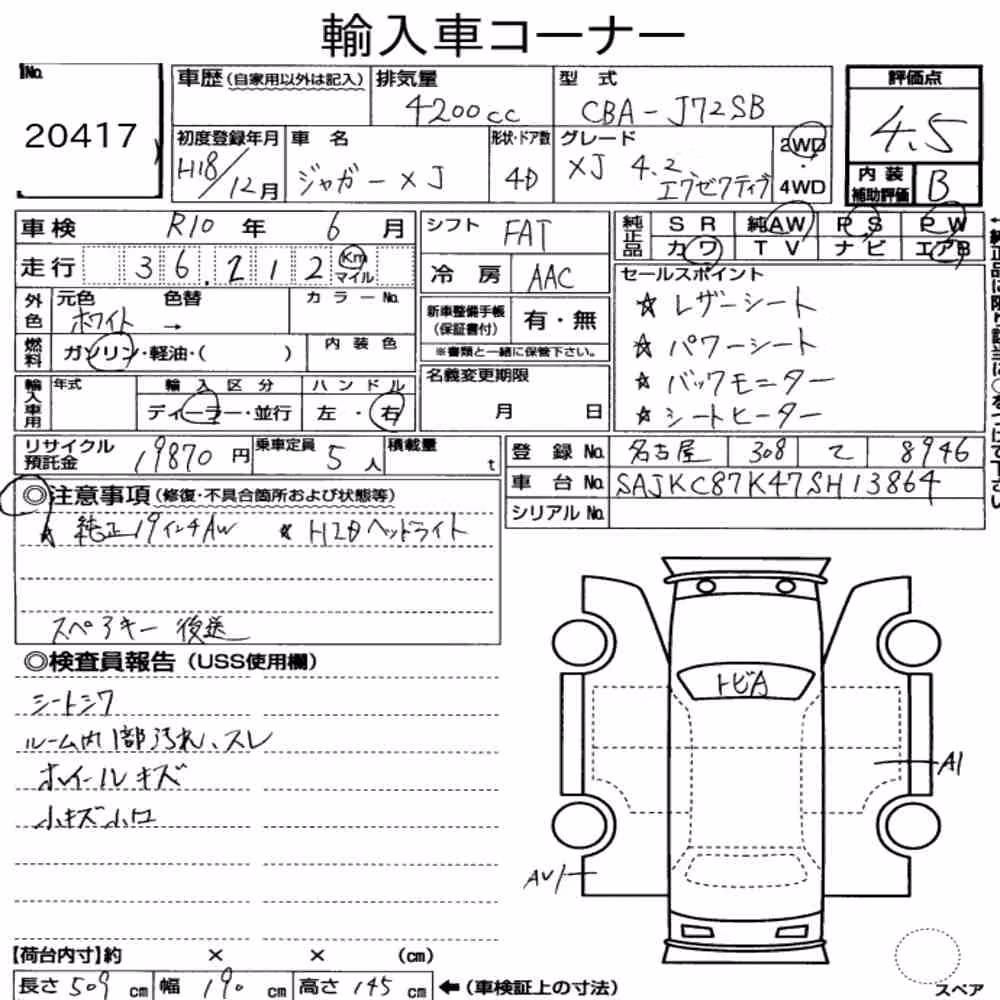 輸入車コーナー
No.
20417
車歴(自家用以外は記入)
排気量
4200cc
型 式
CBA-J72SB
評価点
4.5
初度登録年月
H18/12月
車 名
ジャガーXJ
形状・ドア数
4D
グレード
XJ 4.2
エグゼクティブ
2WD
・
4WD
内 装
補助評価
B
車検 R10 年 6 月
走行 36.212 Km
マイル
外色
元色 色替
ホワイト →
カラーNo.
燃料
ガソリン・軽油・( )
内 装 色
輸入車用
年式
輸 入 区 分
ディーラー・並行
ハ ン ド ル
左 ・ 右
シフト FAT
冷 房 AAC
新車整備手帳
(保証書付)
有・無
※書類と一緒に保管下さい。
名義変更期限
月 日
純正品
S R 純AW P S P W
カワ T V ナビ エアB
セールスポイント
☆ レザーシート
☆ パワーシート
☆ バックモニター
☆ シートヒーター
リサイクル
預託金
19870 円
乗車定員 5 人
積載量 t
登 録 No. 名古屋 308 て 8946
車 台 No. SAJKC87K47SH13864
シリアル No.
◎注意事項(修復・不具合箇所および状態等)
☆ 純正19インチAW ☆ HIDヘッドライト
スペアキー 後送
◎検査員報告(USS使用欄)
シートシワ
ルーム内1部汚れ、スレ
ホイールキズ
小キズ小凹
トビA
A1
AU1
【荷台内寸】約 × × (cm)
長さ 509 cm 幅 190 cm 高さ 145 cm ←(車検証上の寸法)
スペア